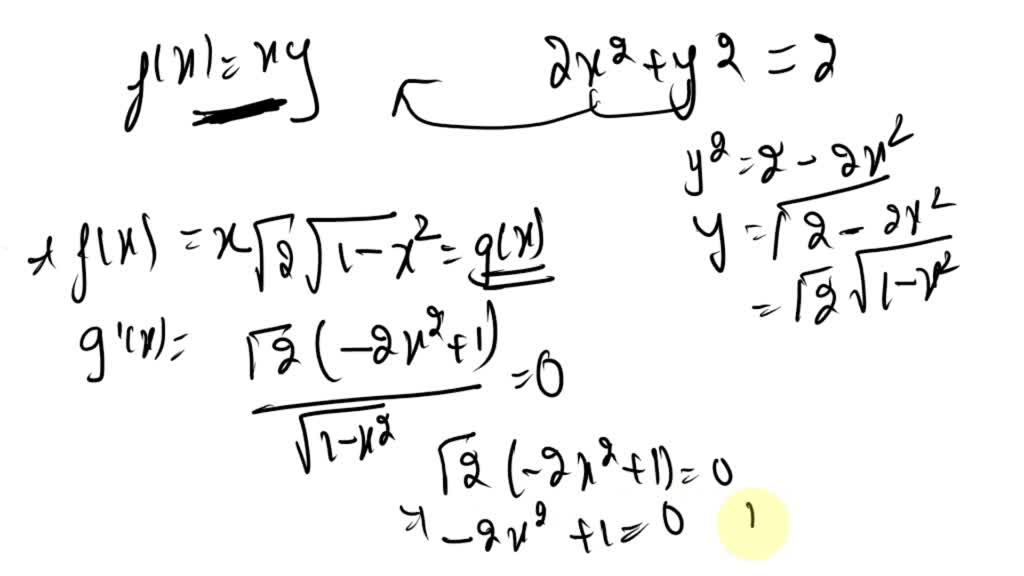 f(x) = xy
2x2 + y2 = 2
y2 = 2 - 2x2
y = √2 - 2x2
= √2 √1-x2
f(x) = x√2 √1-x2 = g(x)
g'(x) = √2(-2x2+1) / √1-x2 = 0
√2 (-2x2+1) = 0
-2x2 + 1 = 0